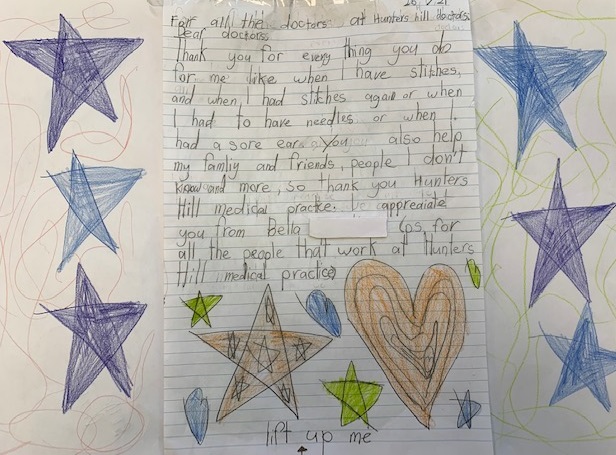 For all the doctors at Hunters hill doctors.
Dear doctors
Thank you for every thing you do
for me like when I have stitches,
and when I had stitches again or when
I had to have needles or when I
had a sore ear. you also help
my famliy and friends, people I don't
know and more, so thank you Hunters
Hill medical practice. We apprediate
you from Bella
ps. for
all the people that work at Hunters
Hill medical practice
lift up me